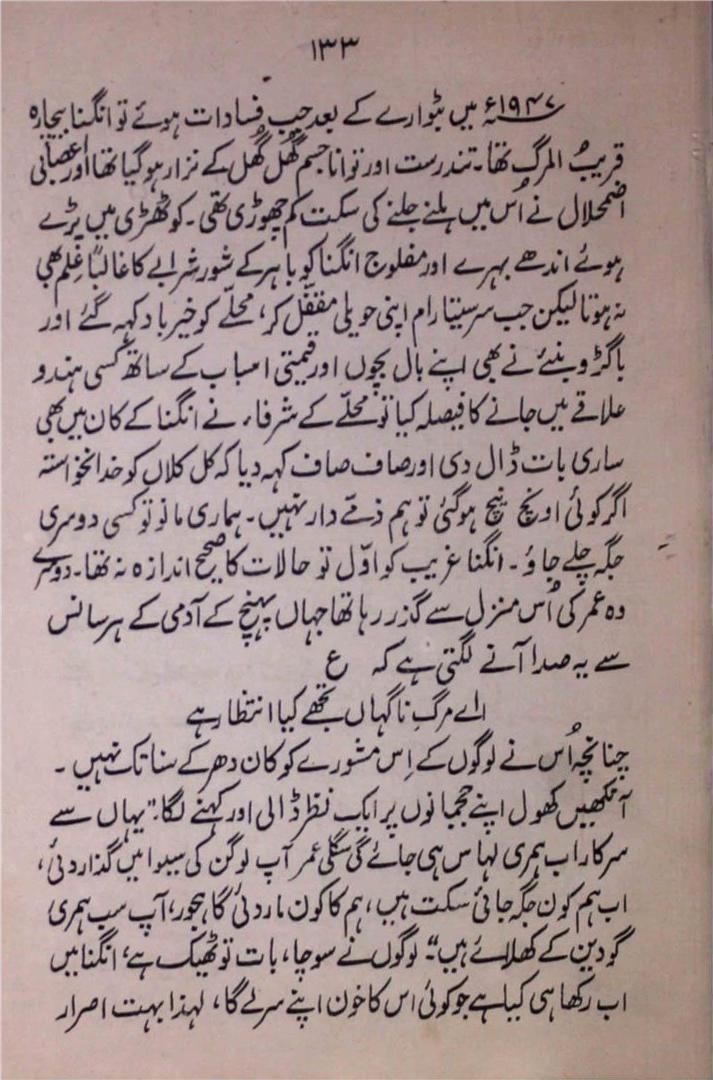 ۱۳۳
۱۹۴۷ء میں بٹوارے کے بعد جب فسادات ہوئے تو انگنا بیچارہ
قریبُ المرگ تھا۔ تندرست اور توانا جسم گھُل گھُل کے نزار ہو گیا تھا اور اعصابی
اضمحلال نے اُس میں ہلنے جلنے کی سکت کم چھوڑی تھی۔ کوٹھڑی میں پڑے
ہوئے اندھے بہرے اور مفلوج انگنا کو باہر کے شور شرابے کا غالباً علم بھی
نہ ہوتا لیکن جب سر سیتا رام اپنی حویلی مقفّل کر، محلّے کو خیر باد کہہ گئے اور
باگڑو بنئے نے بھی اپنے بال بچوں اور قیمتی اسباب کے ساتھ کسی ہندو
علاقے میں جانے کا فیصلہ کیا تو محلّے کے شرفاء نے انگنا کے کان میں بھی
ساری بات ڈال دی اور صاف صاف کہہ دیا کہ کل کلاں کو خدانخواستہ
اگر کوئی اونچ نیچ ہو گئی تو ہم ذمّے دار نہیں۔ ہماری مانو تو کسی دوسری
جگہ چلے جاؤ۔ انگنا غریب کو اوّل تو حالات کا صحیح اندازہ نہ تھا۔ دوسرے
وہ عمر کی اُس منزل سے گذر رہا تھا جہاں پہنچ کے آدمی کے ہر سانس
سے یہ صدا آنے لگتی ہے کہ ع
اے مرگِ ناگہاں تجھے کیا انتظار ہے
چنانچہ اُس نے لوگوں کے اِس مشورے کو کان دھر کے سنا تک نہیں۔
آنکھیں کھول اپنے ججمانوں پر ایک نظر ڈالی اور کہنے لگا۔ "یہاں سے
سرکار اب ہمری لہاس ہی جائے گی سگلی عمر آپ لوگن کی سیوا میں گذار دئی،
اب ہم کون جگہ جائی سکت ہیں، ہم کا کون مار دئی گا ہجور، آپ سب ہمری
گودین کے کھلائے ہیں"۔ لوگوں نے سوچا، بات تو ٹھیک ہے، انگنا میں
اب رکھا ہی کیا ہے جو کوئی اس کا خون اپنے سر لے گا، لہذا بہت اصرار